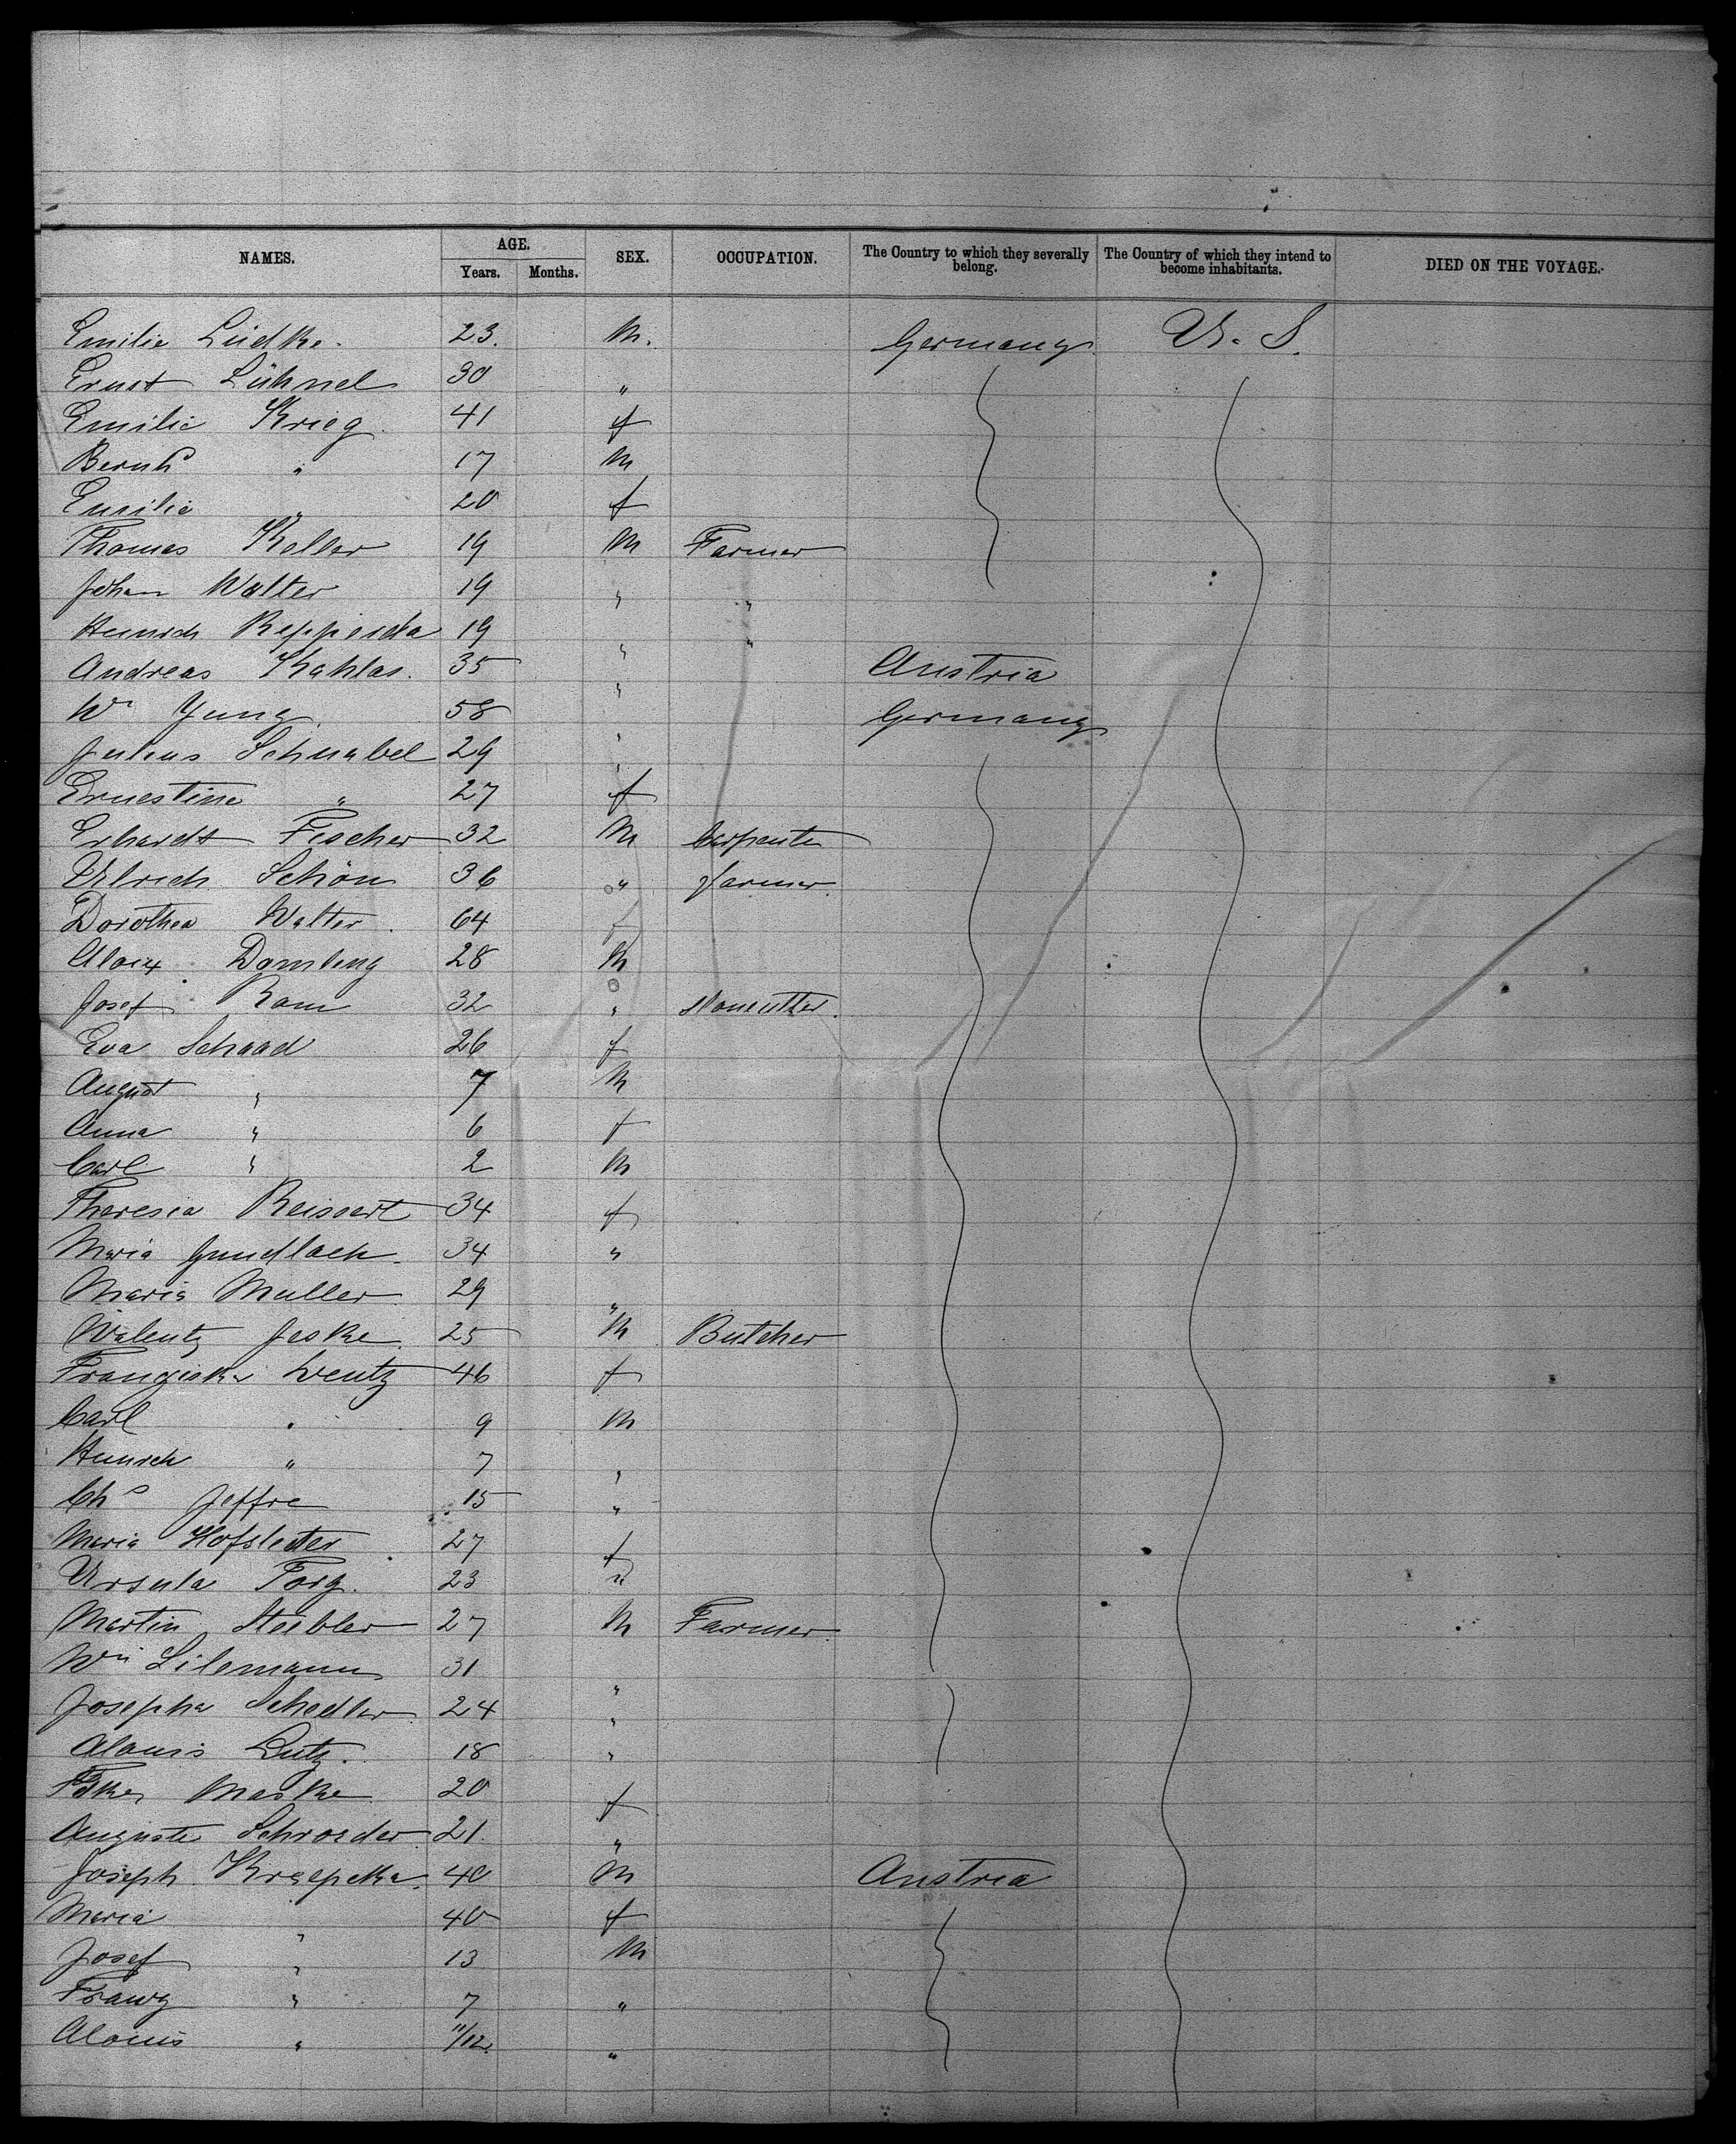 NAMES. AGE. Years. Months. SEX. OCCUPATION. The Country to which they severally belong. The Country of which they intend to become inhabitants. DIED ON THE VOYAGE.
Emilie Lüdke. 23. M. Germany U. S.
Ernst Lühnel 30 "
Emilie Krieg. 41 f
Bernhd " 17 M
Emilie " 20 f
Thomas Keller 19 M Farmer
Johan Walter 19 " "
Heinrich Repperda 19 " "
Andreas Kahlas. 35 " Austria
Wm Yung. 58 " Germany
Julius Schnabel 29 "
Ernestine " 27 f
Erhardt Fischer 32 M Carpenter
Ulrich Schön 36 " farmer.
Dorothea Walter. 64 f
Aloix Domling 28 M
Josef Rom 32 " stonecutter.
Eva Schaad 26 f
August " 7 M
Anna " 6 f
Carl " 2 M
Theresia Reissert 34 f
Maria Gundlach. 34 "
Maria Muller 29 "
Walentz Jeske. 25 M Butcher
Franziska Wentz 46 f
Carl " 9 M
Heinrich " 7 "
Chs Jeffre 15 "
Maria Hofsletter 27 f
Ursula Forg. 23 "
Martin Steibler 27 M Farmer.
Wm Lilemann 31 "
Josepha Schedler 24 "
Alouis Lutz. 18 "
Maske 20 f
Auguste Schroeder 21. "
Joseph Kralpcka. 40 M Austria
Maria " 40 f
Josef " 13 M
Franz " 7 "
Alouis " 11/12. "